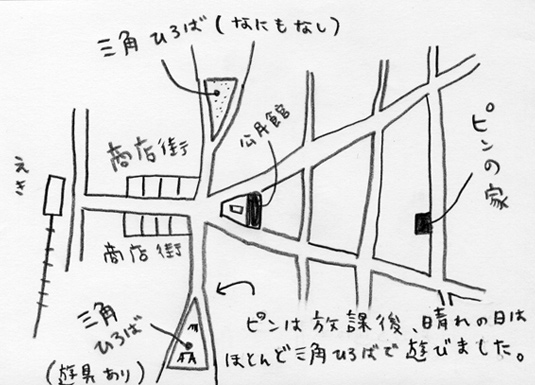 三角ひろば(なにもなし)
公民館
商店街
えき
ピンの家
商店街
三角
ひろば
(遊具あり)
ピンは放課後、晴れの日は
ほとんど三角ひろばで遊びました。